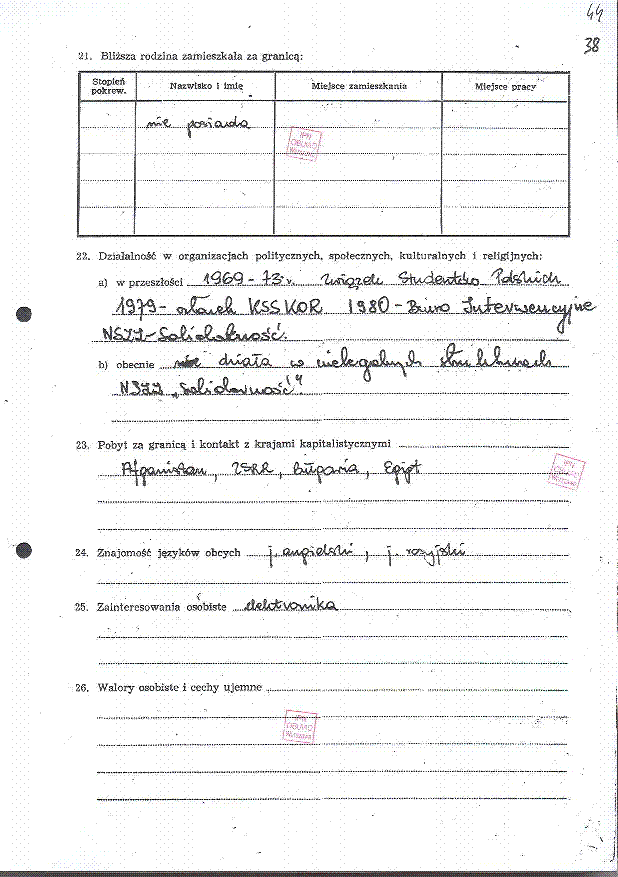 44
38
21. Bliższa rodzina zamieszkała za granicą:
Stopień pokrew. Nazwisko i imię Miejsce zamieszkania Miejsce pracy
nie posiada
IPN
OBUiAD
Warszawa
22. Działalność w organizacjach politycznych, społecznych, kulturalnych i religijnych:
a) w przeszłości 1969-73 r. Związek Studentów Polskich
1979- członek KSS KOR 1980- Biuro Interwencyjne
NSZZ-Solidarność.
b) obecnie działa w nielegalnych strukturach
NSZZ „Solidarność"
23. Pobyt za granicą i kontakt z krajami kapitalistycznymi
Afganistan, ZSRR, Bułgaria, Egipt
IPN
OBUiAD
Warszawa
24. Znajomość języków obcych j. angielski, j. rosyjski
25. Zainteresowania osobiste elektronika
26. Walory osobiste i cechy ujemne
IPN
OBUiAD
Warszawa